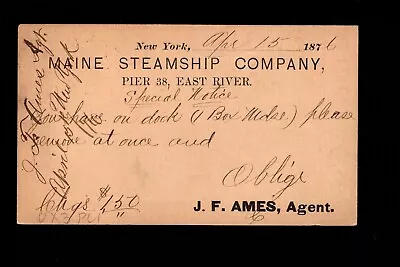 New York, Apr 15 1876
MAINE STEAMSHIP COMPANY,
PIER 38, EAST RIVER.
Special Notice
You have on dock (1 Box Mdse) please
remove at once and
Oblige
Chgs $4.50
J. F. AMES, Agent.
J. F. Ames Agt.
April New York